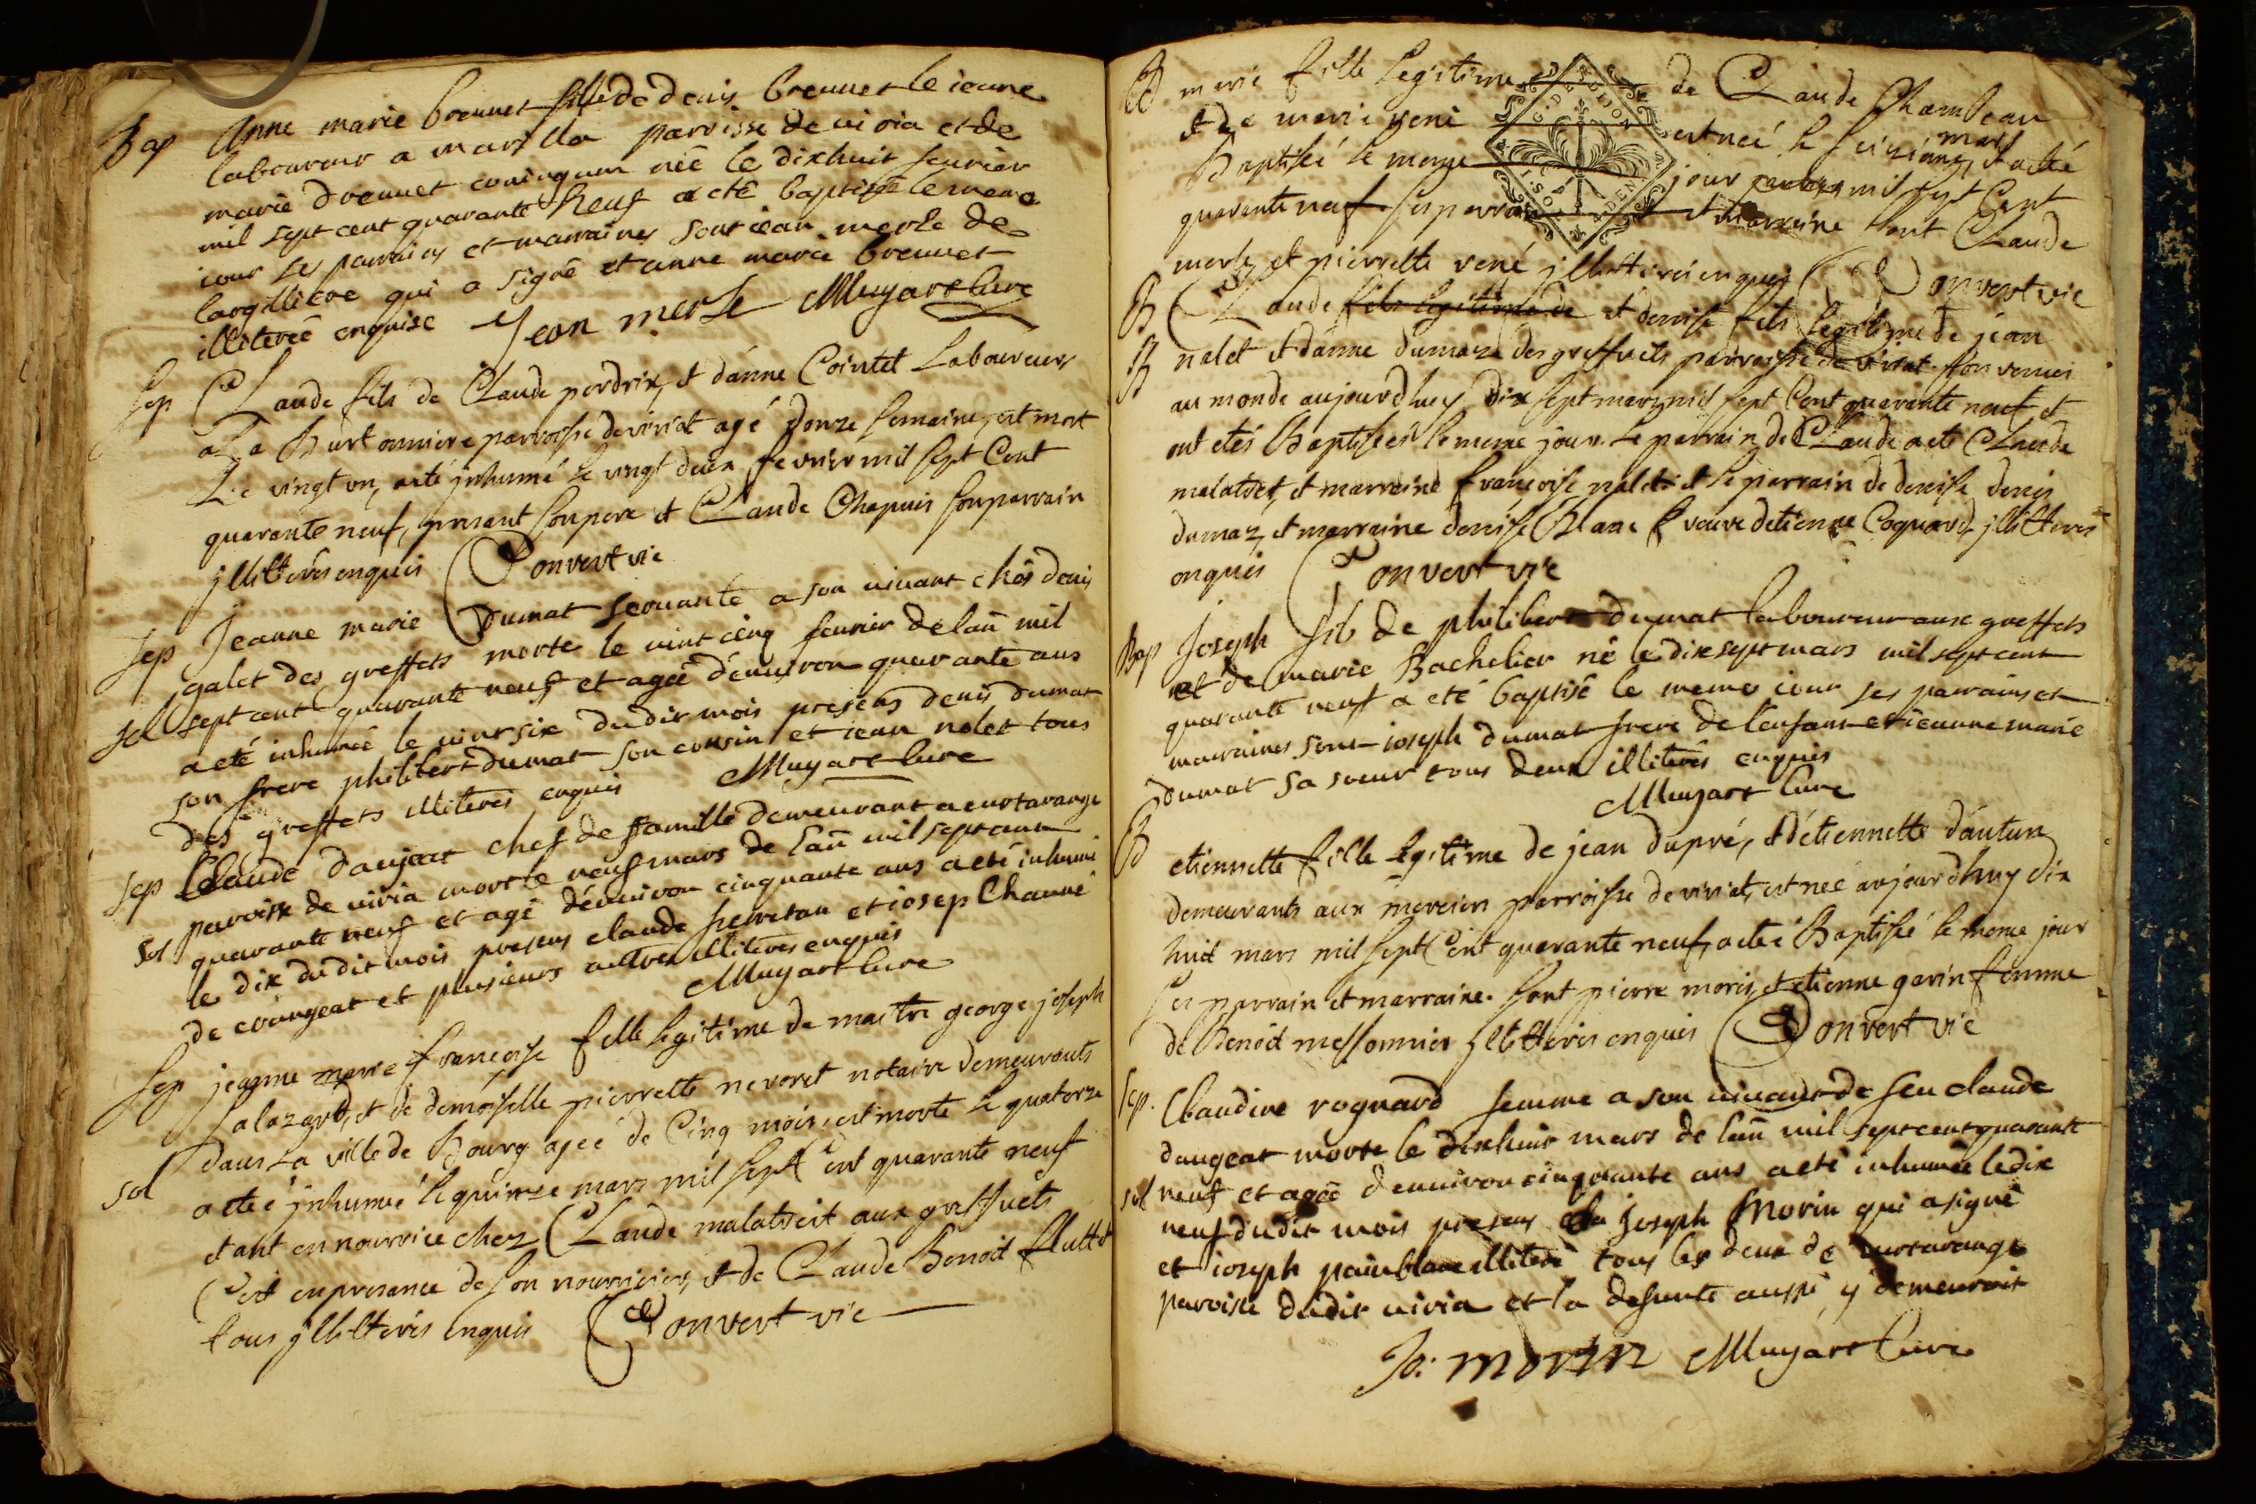 Bap Anne marie brevuet fille de denis brevuet le jeune
laboureur a marsilla paroisse de viria et de
marie drevuet conioguon née le dixhuit feurier
mil sept cent quarante neuf a eté baptisée le meme
iour ses parrains et marraines sont iean merle de
largilliere qui a signé et anne marie brevuet
illiterée enquise Jean merle Muyart Curé
Sep Claude fils de Claude perdrix, et d'anne Cointet Laboureurs
a La Burtonniere parroisse de viriat agé d'onze semaines, est mort
Le vingt un, a été jnhumé le vingt deux fevrier mil sept Cent
quarante neuf, present son pere et Claude Chapuis son parrain
jllitterés enquis Convert vic
Sep Jeanne marie Dumat servante a son vivant chés denis
galet des greffets morte le vint cinq feurier de lañ mil
sol sept cent quarante neuf et agée d'environ quarante ans
a eté inhumée le vint six dudit mois presens denis dumat
son frere philibert dumat son cousin et iean nalet tous
des greffets illiterés enquis Muyart Curé
Sep Claude daujeat chef de famille demeurant a curtarange
paroisse de viria mort le neuf mars de lañ mil sept cent
sol quarante neuf et agé d'environ cinquante ans a eté inhumé
le dix dudit mois presens claude fievretau et iosep Chanué
de et plusieurs autres illiterés enquis
Muyart Curé
Sep jeanne marie françoise fille legitime de maitre george joseph
Salazard, et de demoiselle pierrette nevoret notaire demeurants
dans La ville de Bourg agée de Cinq mois, est morte le quatorze
sol a eté jnhumée le quinze mars mil sept Cent quarante neuf
etant en nourrice chez Claude malatrait aux greffets
C'est en presence de son nourricier, et de Claude Benoit flutet
tous jllitterés enquis Convert vic
B marie fille legitime de Claude Chambeau
et de marie yené est neé le seizieme mars, et a eté
Baptisée le meme jour mil sept Cent
quarante neuf ses parrain et marraine sont Claude
merle et pierrette vené jllitterés enquis Convert vic
B Claude fils legitime de et denise fils legitime de jean
B nalet et d'anne dumaz des greffets parroisse de viriat sont venus
au monde aujourdhuy dix sept mars mil sept Cent quarante neuf, et
ont etés Baptisées le meme jour. Le parrain de Claude a eté Claude
malatret, et marraine françoise nalet et le parrain de denise denis
dumaz, et marraine denise Blanc veuve detienne Coquard, jllitterés
enquis Convert vic
Bap Joseph fils de philibert dumat laboureur aux greffets
et de marie Bachelier né le dixsept mars mil sept cent
quarante neuf a eté baptisé le meme iour ses parrains et
marraines sont ioseph dumat frere de lenfant et ieanne marie
Dumat sa soeur tous deux illiterés enquis
Muyart Curé
B etiennette fille legitime de jean dupré, et d'etiennette d'autun
demeurants aux merciers parroisse de viriat, est neé aujourdhuy dix
huit mars mil sept Cent quarante neuf, a eté Baptisée le meme jour
ses parrain et marraine. sont pierre moris, et etienne gavin femme
de Benoit messonnier jllitterés enquis Convert vic
Sep. Claudine roguard femme a son vivant de feu claude
daugeat morte le dixhuit mars de lañ mil sept cent quarante
sol neuf et agée denviron cinquante ans a eté inhumée le dix
neuf dudit mois presens Joseph Morin qui a signé
et ioseph painblanc illiteré tous les deux de curtarange
paroisse dudit viria et la defunte aussi y demeuroit
Jo: morin Muyart Curé